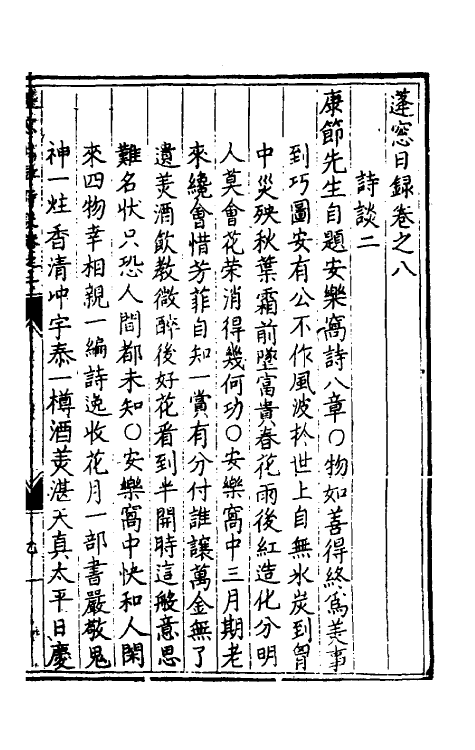 蓬窓日録卷之八
詩談二
康節先生自題安樂窩詩八章○物如善得終爲美事
到巧圖安有公不作風波扵世上自無氷炭到胷
中災殃秋葉霜前墜富貴春花雨後紅造化分明
人莫會花荣消得幾何功○安樂窩中三月期老
來纔會惜芳菲自知一賞有分付誰讓萬金無了
遺美酒飲教微醉後好花看到半開時這般意思
難名狀只恐人間都未知○安樂窩中快和人閑
來四物幸相親一編詩逸收花月一部書嚴敬鬼
神一炷香清冲宇泰一樽酒美湛天真太平日慶